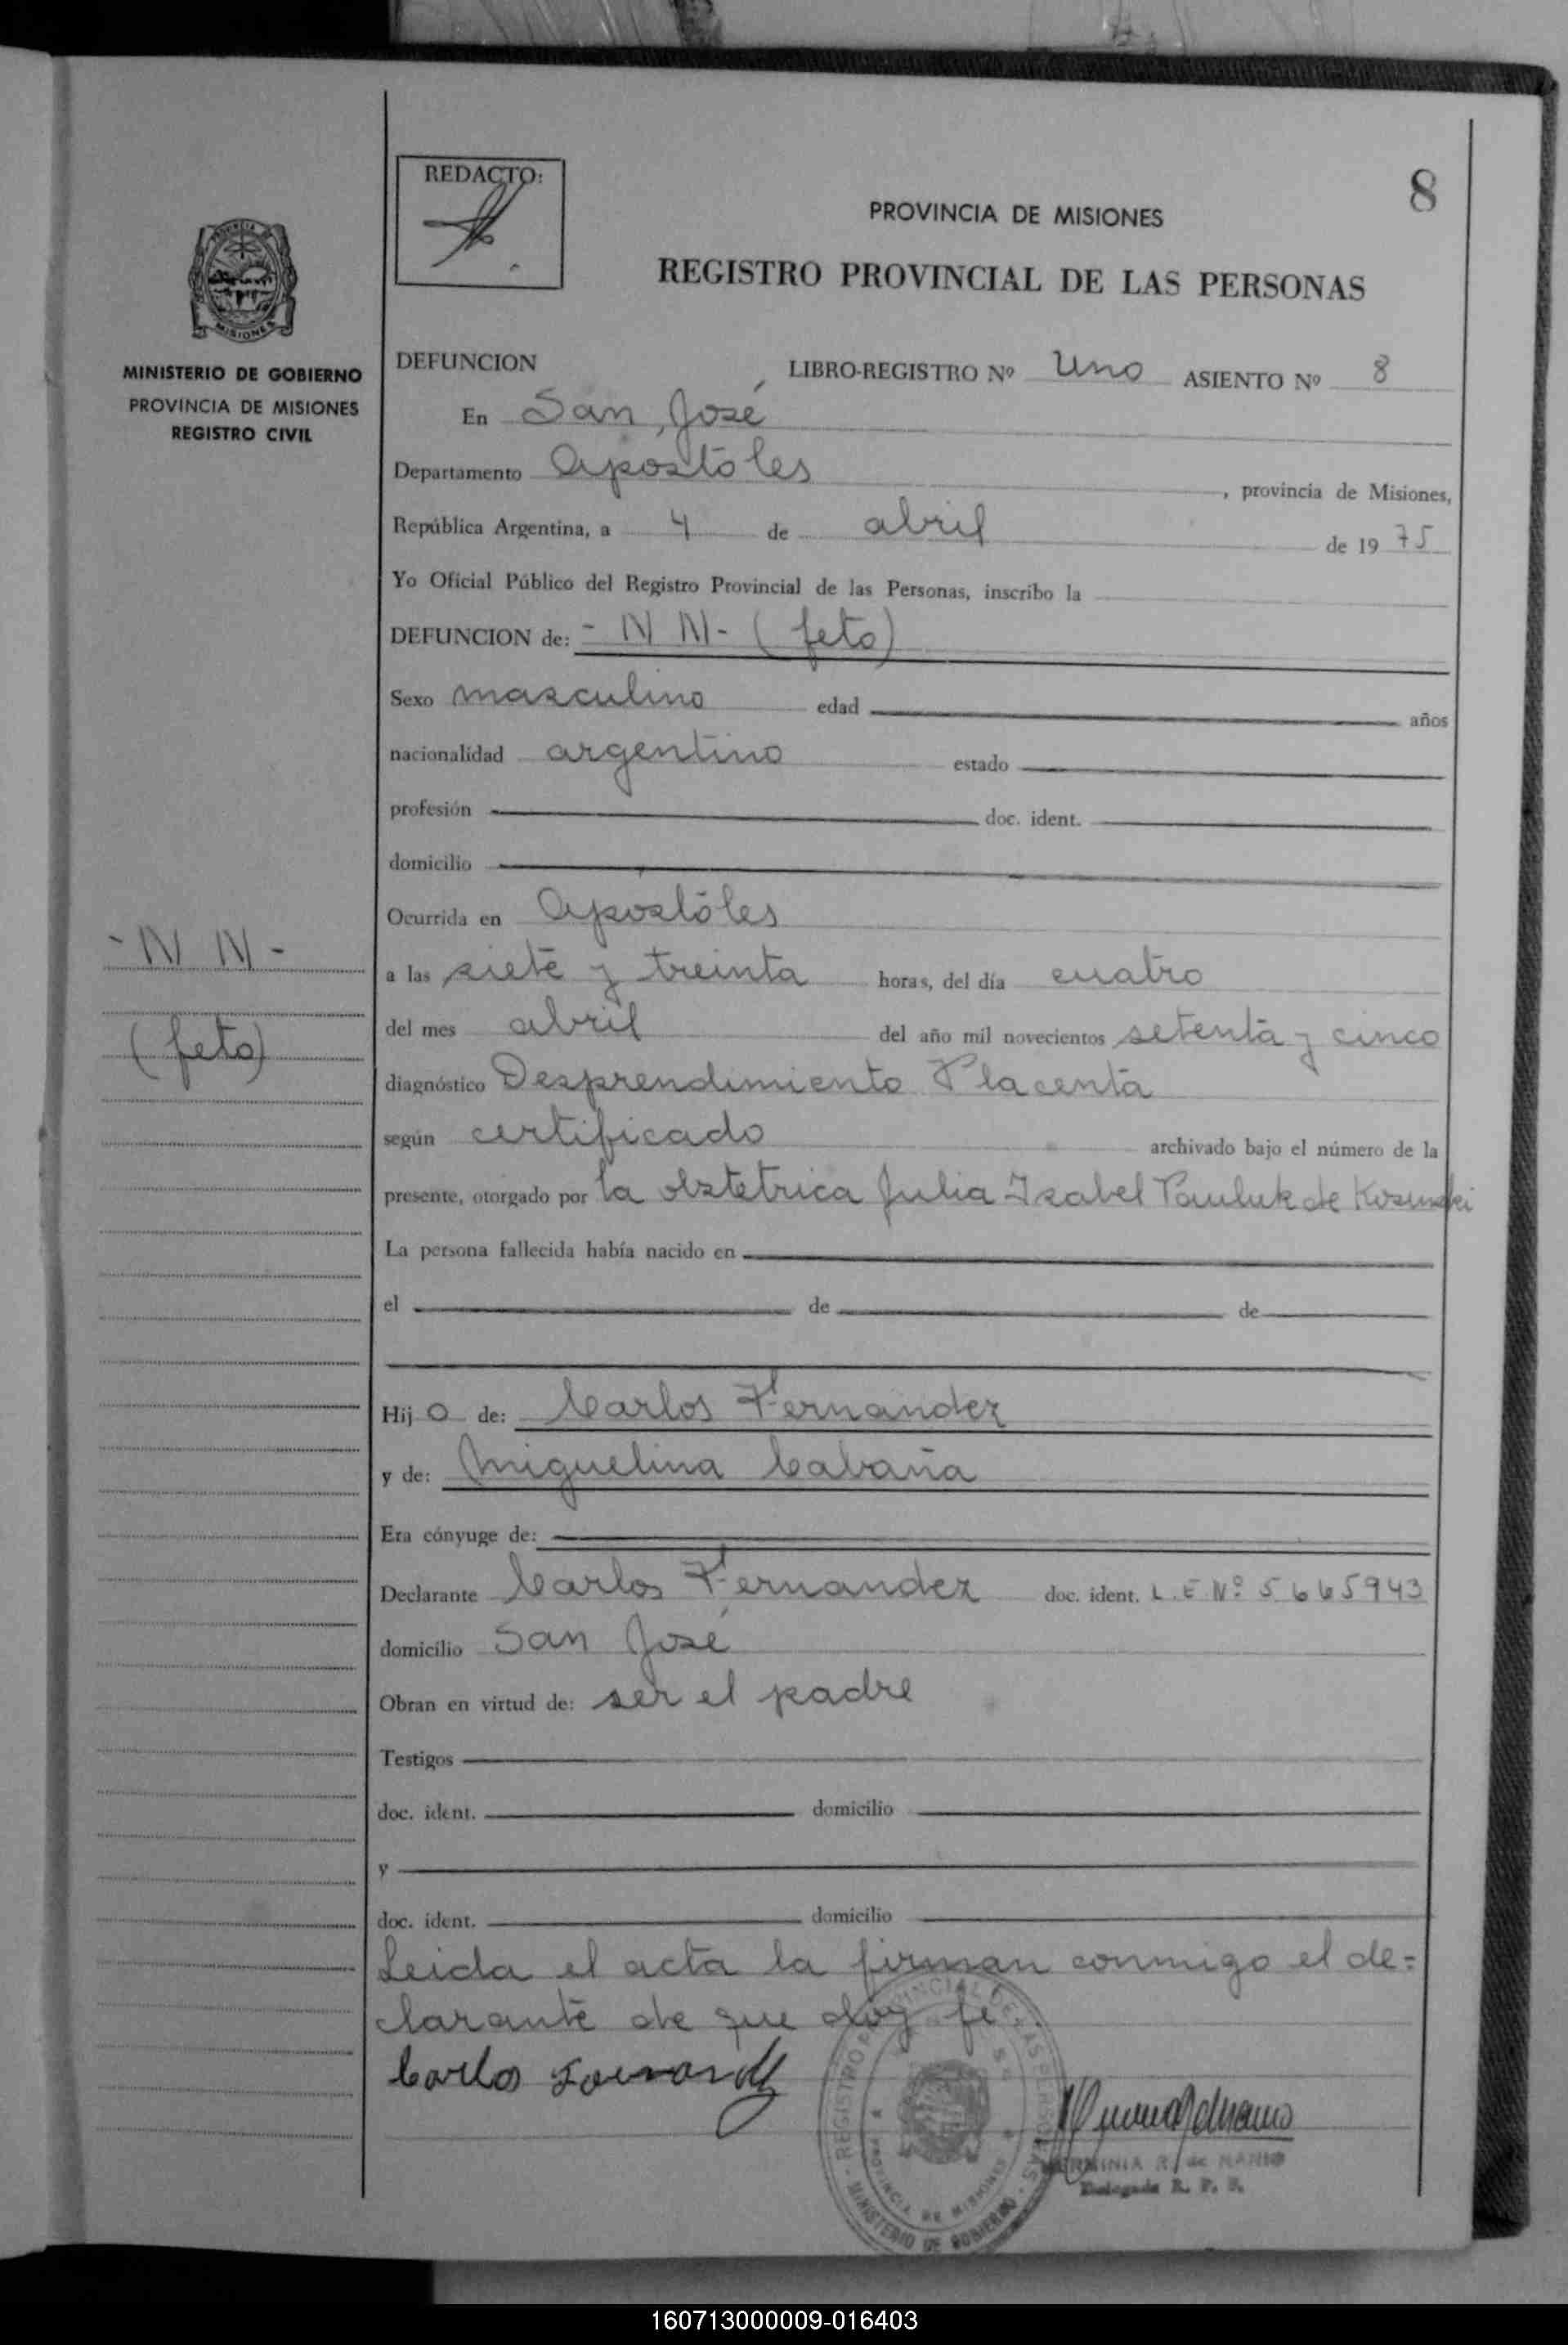 8
REDACTO:
PROVINCIA DE MISIONES
REGISTRO PROVINCIAL DE LAS PERSONAS
MISIONES
MINISTERIO DE GOBIERNO
PROVINCIA DE MISIONES
REGISTRO CIVIL
DEFUNCION LIBRO-REGISTRO Nº Uno ASIENTO Nº 8
En San José
Departamento Apostoles, provincia de Misiones,
República Argentina, a 4 de abril de 1975
Yo Oficial Público del Registro Provincial de las Personas, inscribo la
DEFUNCION de: - N N - (feto)
Sexo masculino edad años
nacionalidad argentino estado
profesión doc. ident.
domicilio
Ocurrida en Apostóles
- N N -
(feto)
a las siete y treinta horas, del día cuatro
del mes abril del año mil novecientos setenta y cinco
diagnóstico Desprendimiento Placenta
según certificado archivado bajo el número de la
presente, otorgado por la obstetrica Julia Isabel Pauluk de Kosinski
La persona fallecida había nacido en
el de de
Hij o de: Carlos Fernandez
y de: Miguelina Cabaña
Era cónyuge de:
Declarante Carlos Fernandez doc. ident. L.E Nº 5665943
domicilio San José
Obran en virtud de: ser el padre
Testigos
doc. ident. domicilio
y
doc. ident. domicilio
Leida el acta la firman conmigo el de=
clarante de que doy fe
Carlos Fernandez
REGISTRO PROVINCIAL DE LAS PERSONAS
PROVINCIA DE MISIONES
MINISTERIO DE GOBIERNO
HERMINIA R. de
Delegada R. P. P.
160713000009-016403